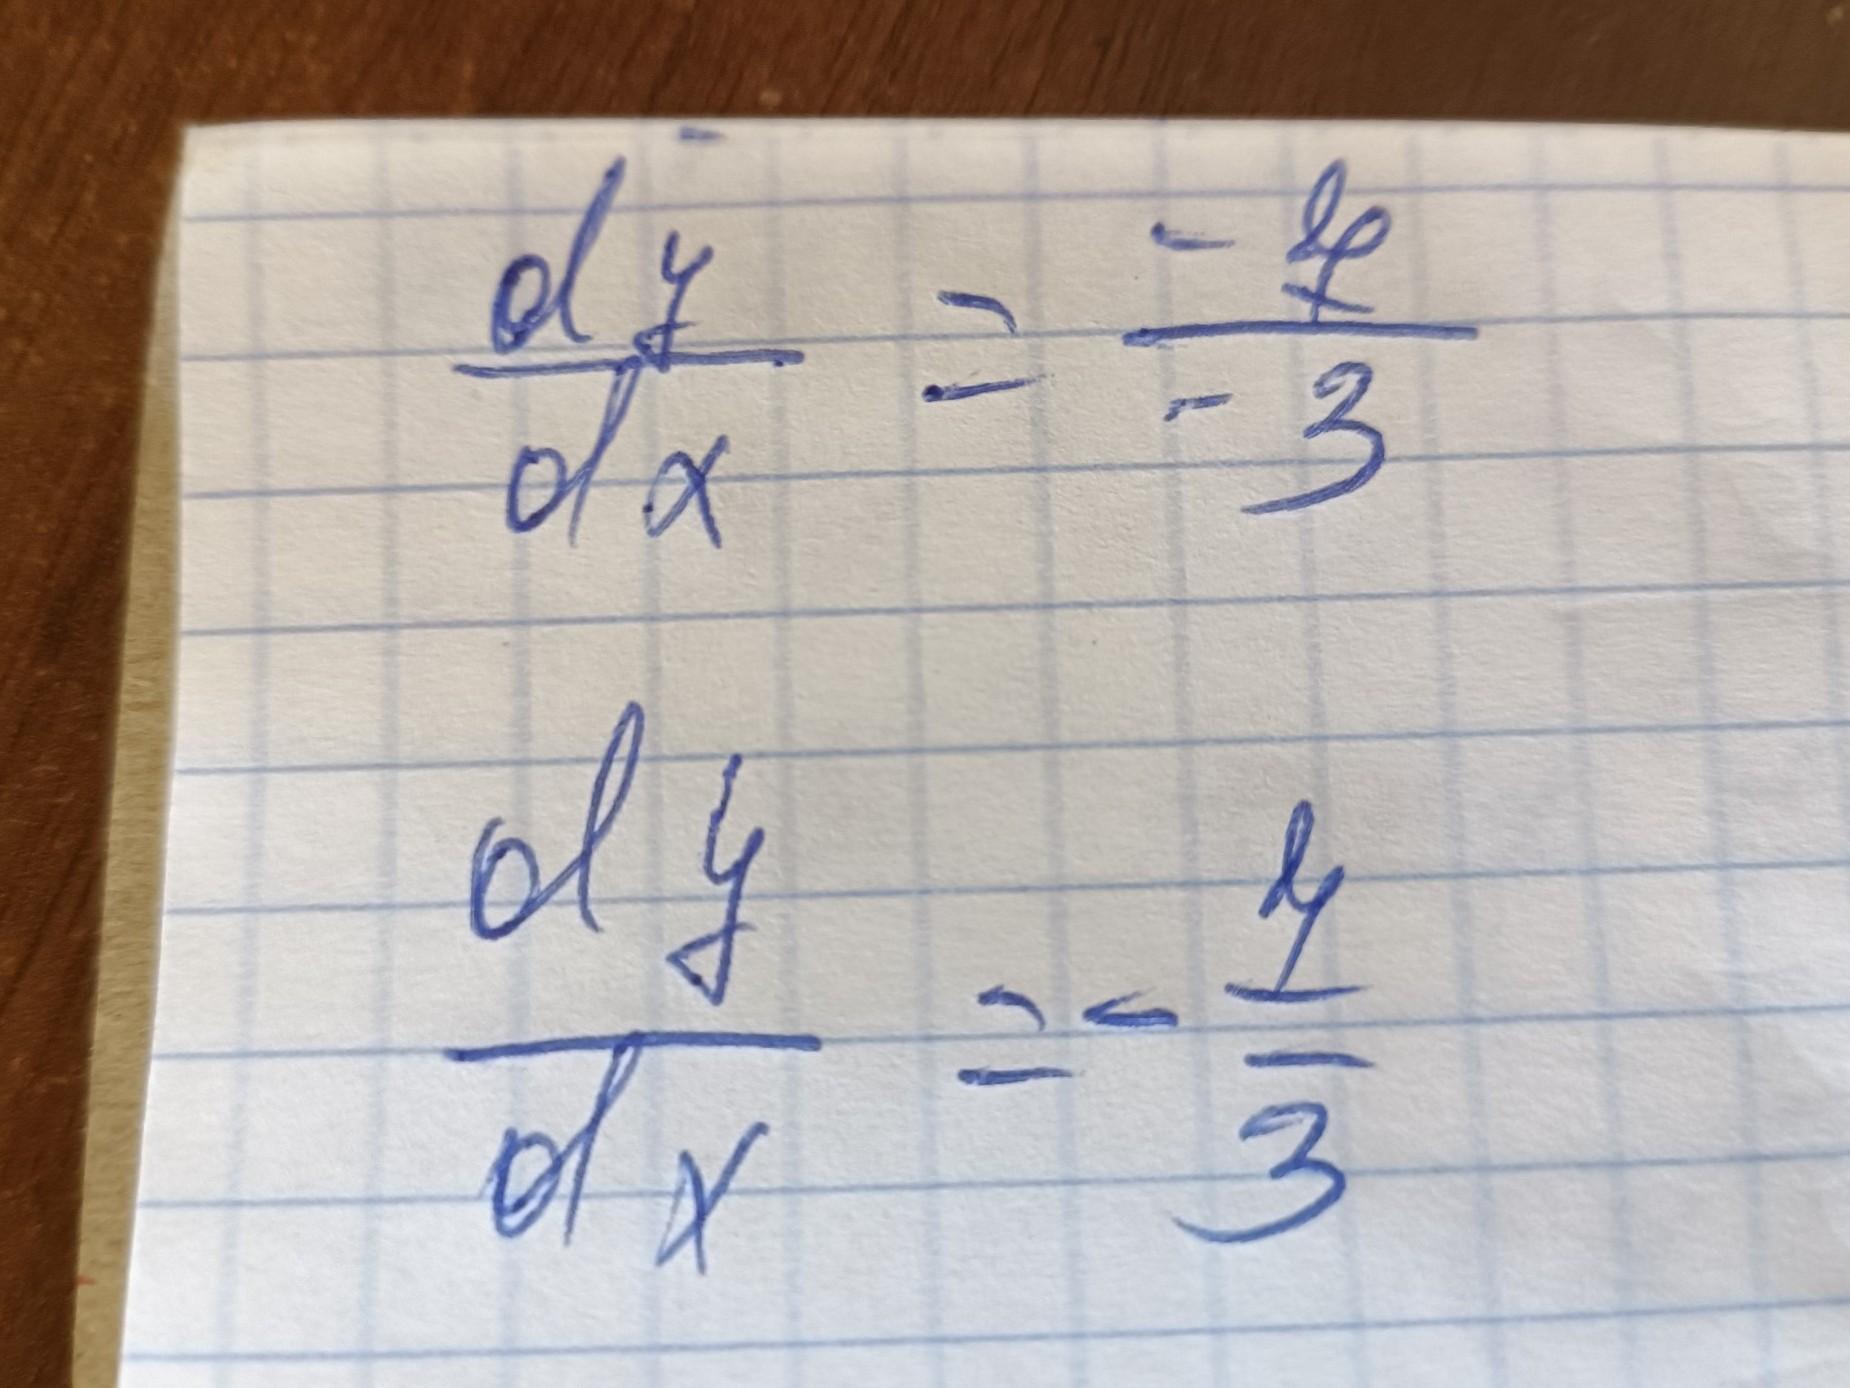 dy/dx = -y/-3
dy/dx = - y/3